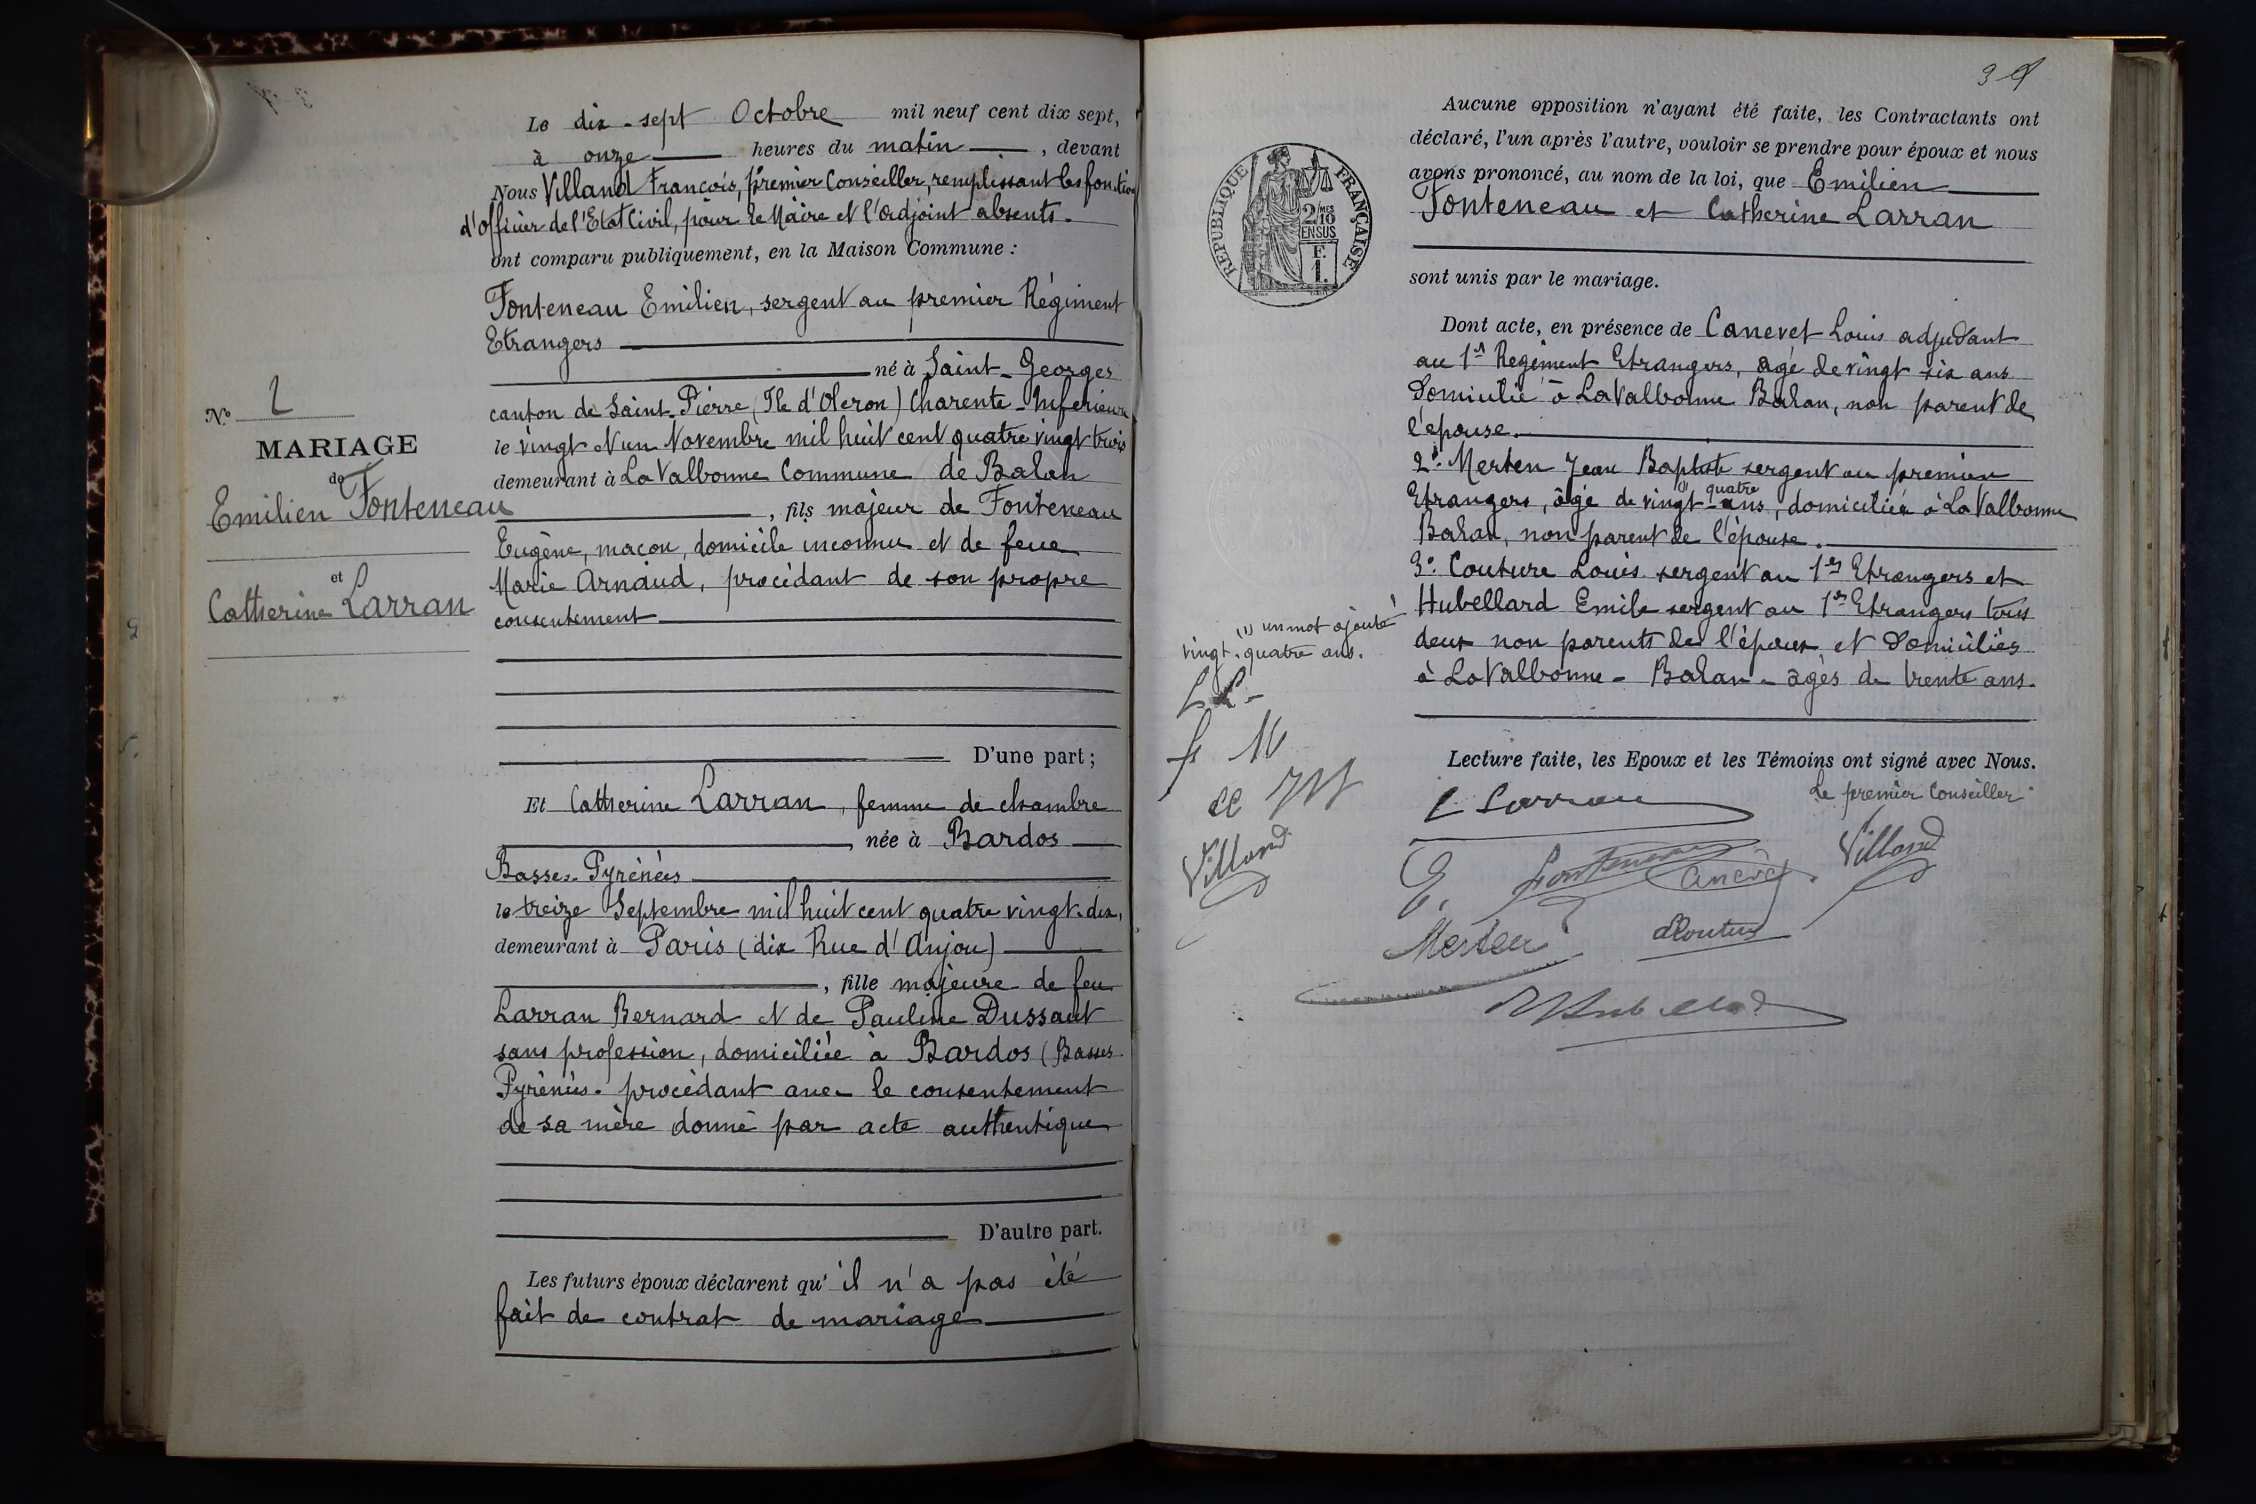 Le dix-sept Octobre mil neuf cent dix sept,
à onze heures du matin, devant
Nous Villand François, premier Conseiller, remplissant les fonction
d'Officier de l'Etat Civil, pour le Maire et l'adjoint absents.
ont comparu publiquement, en la Maison Commune :
Fonteneau Emilien, sergent au premier Régiment
Etrangers
né à Saint-Georges
canton de Saint-Pierre, (Ile d'Oleron) Charente-Inferieure
le vingt et un Novembre mil huit cent quatre vingt trois
demeurant à La Valbonne Commune de Balan
, fils majeur de Fonteneau
Eugène, maçon, domicile inconnu et de feue
Marie Arnaud, procédant de son propre
consentement
D'une part ;
N° 2
MARIAGE
de
Emilien Fonteneau
et
Catherine Larran
Et Catherine Larran, femme de chambre
, née à Bardos
Basses-Pyrénées
le treize Septembre mil huit cent quatre vingt-dix,
demeurant à Paris (dix Rue d'Anjou)
, fille majeure de feu
Larran Bernard et de Pauline Dussaut
sans profession, domiciliée à Bardos (Basses
Pyrénées. procédant avec le consentement
de sa mère donné par acte authentique
D'autre part.
Les futurs époux déclarent qu'il n'a pas été
fait de contrat de mariage
3
Aucune opposition n'ayant été faite, les Contractants ont
déclaré, l'un après l'autre, vouloir se prendre pour époux et nous
avons prononcé, au nom de la loi, que Emilien
Fonteneau et Catherine Larran
sont unis par le mariage.
REPUBLIQUE FRANÇAISE
2/MES
10
EN SUS
F.
1.
Dont acte, en présence de Canevet Louis adjudant
au 1er Regiment Etrangers, agé de vingt six ans
domicilié à La Valbonne Balan, non parent de
l'épouse.
2°. Merten Jean Baptiste sergent au premier
quatre
Etrangers, âgé de vingt-(1) ans, domiciliée à La Valbonne
Balan, non parent de l'épouse.
3°. Couture Louis sergent au 1er Etrangers et
Hubellard Emile sergent au 1er Etrangers tous
deux non parents de l'époux et domiciliés
à La Valbonne - Balan - agés de trente ans.
(1) un mot ajouté
vingt-quatre ans.
Villand
Lecture faite, les Epoux et les Témoins ont signé avec Nous.
Le premier Conseiller
C Larran
E. Fonteneau
Canevet
Villand
Merten
Couture
Hubellard